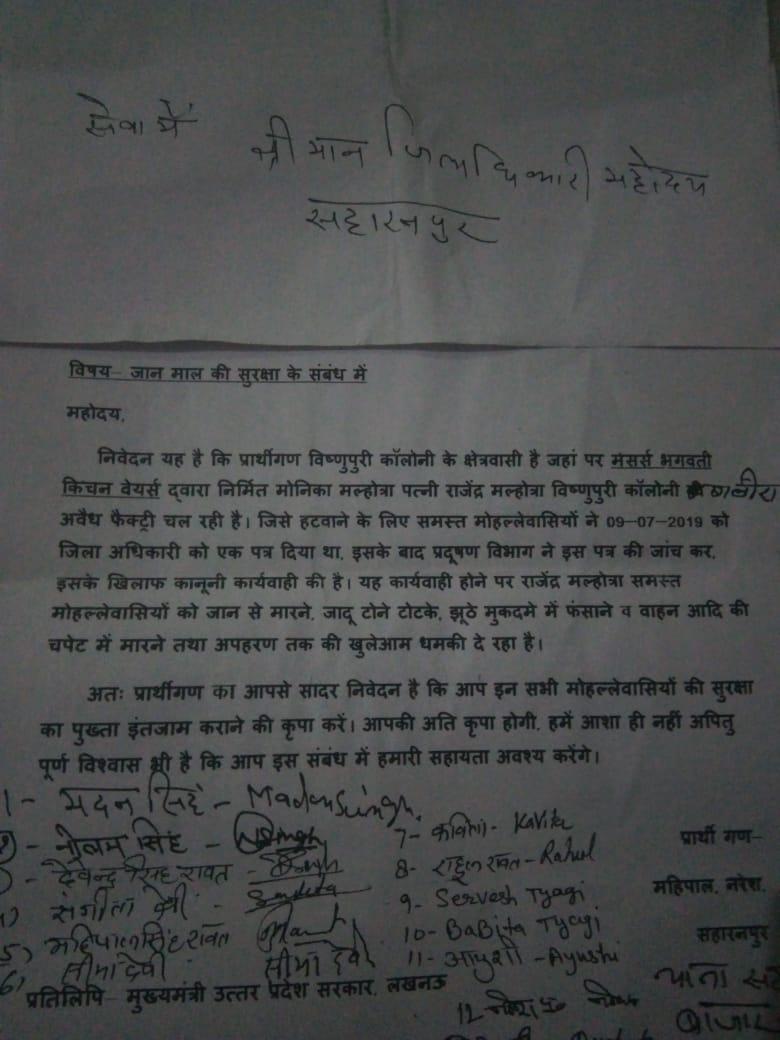 सेवा में
श्री मान जिलाधिकारी महोदय
सहारनपुर
विषय- जान माल की सुरक्षा के संबंध में
महोदय,
निवेदन यह है कि प्रार्थीगण विष्णुपुरी कॉलोनी के क्षेत्रवासी है जहां पर मैसर्स भगवती
किचन वेयर्स द्वारा निर्मित मोनिका मल्होत्रा पत्नी राजेंद्र मल्होत्रा विष्णुपुरी कॉलोनी
अवैध फैक्ट्री चल रही है। जिसे हटवाने के लिए समस्त मोहल्लेवासियों ने 09-07-2019 को
जिला अधिकारी को एक पत्र दिया था, इसके बाद प्रदूषण विभाग ने इस पत्र की जांच कर,
इसके खिलाफ कानूनी कार्यवाही की है। यह कार्यवाही होने पर राजेंद्र मल्होत्रा समस्त
मोहल्लेवासियों को जान से मारने, जादू टोने टोटके, झूठे मुकदमे में फंसाने व वाहन आदि की
चपेट में मारने तथा अपहरण तक की खुलेआम धमकी दे रहा है।
अतः प्रार्थीगण का आपसे सादर निवेदन है कि आप इन सभी मोहल्लेवासियों की सुरक्षा
का पुख्ता इंतजाम कराने की कृपा करें। आपकी अति कृपा होगी, हमें आशा ही नहीं अपितु
पूर्ण विश्वास भी है कि आप इस संबंध में हमारी सहायता अवश्य करेंगे।
1- मदन सिंह - Madan Singh.
- नीलम सिंह -
- देवेन्द्र सिंह रावत -
संगीता देवी - Sangeeta
5) महिपाल सिंह रावत
6) सीमा देवी सीमा देवी
7- कविता- Kavita
8- राहुल रावत- Rahul
9- Servesh Tyagi
10- BaBita Tyagi
11- आयुशी - Ayushi
12
प्रार्थी गण-
महिपाल, नरेश,
सहारनपुर
थाना
बाजार
प्रतिलिपि- मुख्यमंत्री उत्तर प्रदेश सरकार, लखनऊ